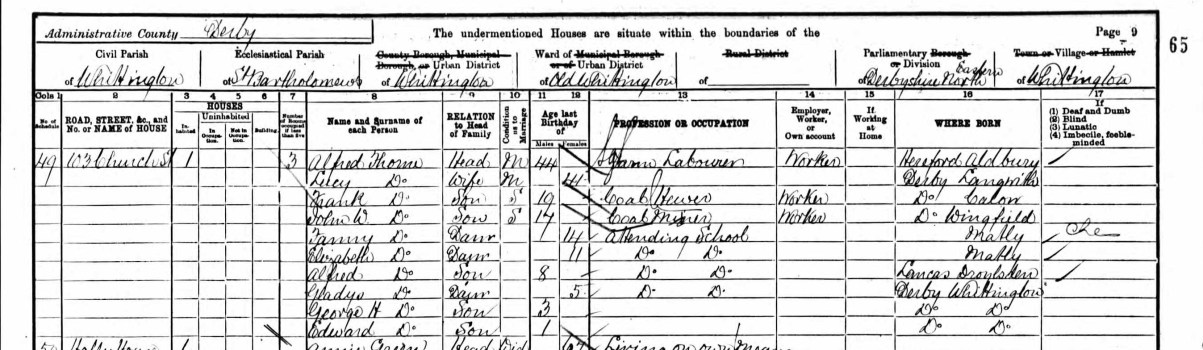 Administrative County Derby The undermentioned Houses are situate within the boundaries of the Page 9
65
Civil Parish Ecclesiastical Parish County Borough, Municipal Borough, or Urban District Ward of Municipal Borough or of Urban District Rural District Parliamentary Borough or Division Town or Village or Hamlet
of Whittington of St Bartholomews of Whittington of Old Whittington of of Derbyshire North Eastern of Whittington
Cols 1 2 3 4 5 6 7 8 9 10 11 12 13 14 15 16 17
No. of Schedule ROAD, STREET, &c., and No. or NAME of HOUSE HOUSES Inhabited Uninhabited In Occupation Not in Occupation Building Number of Rooms occupied if less than five Name and Surname of each Person RELATION to Head of Family Condition as to Marriage Age last Birthday of Males Females PROFESSION OR OCCUPATION Employer, Worker, or Own account If Working at Home WHERE BORN If (1) Deaf and Dumb (2) Blind (3) Lunatic (4) Imbecile, feeble-minded
49 103 Church St 1 3 Alfred Thorne Head M 44 Farm Labourer Worker Hereford Aldbury
Lucy Do Wife M 44 Derby Langwith
Frank Do Son S 19 Coal Hewer Worker Do Calow
John W. Do Son S 17 Coal Miner Worker Do Wingfield
Fanny Do Daur 14 Attending School
Elizabeth Do Daur 11 Do Do
Alfred Do Son 8 Do Do Lancas Droylsden
Gladys Do Daur 5 Do Do Derby Whittington
George H Do Son 3 Do Do
Edward Do Son 1 Do Do
50 1 Annie Head Wid Living on own means